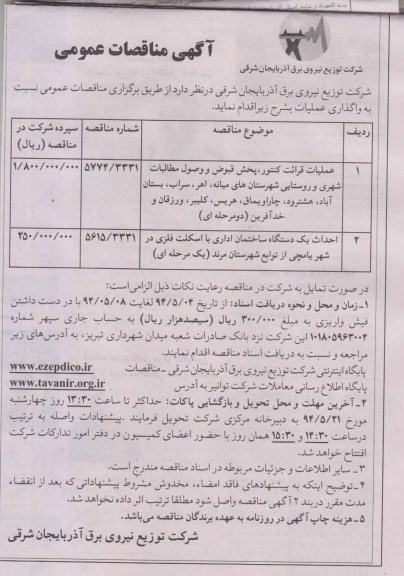 آگهی مناقصات عمومی
شرکت توزیع نیروی برق آذربایجان شرقی
شرکت توزیع نیروی برق آذربایجان شرقی درنظر دارد از طریق برگزاری مناقصات عمومی نسبت
به واگذاری عملیات بشرح زیر اقدام نماید.
ردیف موضوع مناقصه شماره مناقصه سپرده شرکت در مناقصه (ریال)
۱ عملیات قرائت کنتور، پخش قبوض و وصول مطالبات ۵۷۷۴/۳۳۳۱ ۱/۸۰۰/۰۰۰/۰۰۰
شهری و روستایی شهرستان های میانه، اهر، سراب، بستان
آباد، هشترود، چاراویماق، هریس، کلیبر، ورزقان و
خدآفرین (دومرحله ای)
۲ احداث یک دستگاه ساختمان اداری با اسکلت فلزی در ۵۶۱۵/۳۳۳۱ ۲۵۰/۰۰۰/۰۰۰
شهر یامچی از توابع شهرستان مرند (یک مرحله ای)
در صورت تمایل به شرکت در مناقصه رعایت نکات ذیل الزامی است:
۱-زمان و محل و نحوه دریافت اسناد: از تاریخ ۹۴/۵/۰۴ لغایت ۹۴/۰۵/۰۸ با در دست داشتن
فیش واریزی به مبلغ ۳۰۰/۰۰۰ ریال (سیصدهزار ریال) به حساب جاری سپهر شماره
۰۱۰۱۸۰۵۹۶۳۰۰۴ این شرکت نزد بانک صادرات شعبه میدان شهرداری تبریز، به آدرس‌های زیر
مراجعه و نسبت به دریافت اسناد مناقصه اقدام نمایند.
پایگاه اینترنتی شرکت توزیع نیروی برق آذربایجان شرقی - مناقصات www.ezepdico.ir
پایگاه اطلاع رسانی معاملات شرکت توانیر به آدرس www.tavanir.org.ir
۲-آخرین مهلت و محل تحویل و بازگشایی پاکات: حداکثر تا ساعت ۱۳:۳۰ روز چهارشنبه
مورخ ۹۴/۵/۲۱ به دبیرخانه مرکزی شرکت تحویل فرمایند. پیشنهادات واصله به ترتیب
درساعت ۱۴:۳۰ و ۱۵:۳۰ همان روز با حضور اعضای کمیسیون در دفتر امور تدارکات شرکت
افتتاح خواهد شد.
۳- سایر اطلاعات و جزئیات مربوطه در اسناد مناقصه مندرج است.
۴-توضیح اینکه به پیشنهادهای فاقد امضاء، مخدوش مشروط پیشنهاداتی که بعد از انقضاء
مدت مقرر دربند ۲ آگهی مناقصه واصل شود مطلقا ترتیب اثر داده نخواهد شد.
۵-هزینه چاپ آگهی در روزنامه به عهده برندگان مناقصه می‌باشد.
شرکت توزیع نیروی برق آذربایجان شرقی